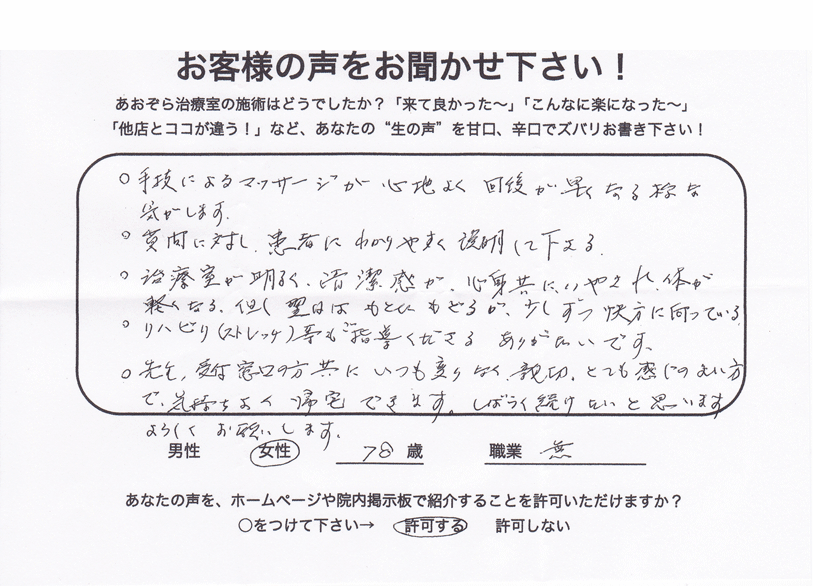 お客様の声をお聞かせ下さい！
あおぞら治療室の施術はどうでしたか？「来て良かった〜」「こんなに楽になった〜」
「他店とココが違う！」など、あなたの“生の声”を甘口、辛口でズバリお書き下さい！
○手技によるマッサージが心地よく回後が早くなる様な
気がします。
○質問に対し、患者にわかりやすく説明して下さる。
○治療室が明るく、清潔感が、心身共に、いやされ、体が
軽くなる。但し翌日はもとにもどるが、少しずつ快方に向っている。
○リハビリ(ストレッチ)等もご指導くださる ありがたいです。
○先生、受付窓口の方共にいつも変りなく、親切、とても感じのよい方
で、気持ちよく帰宅できます。しばらく続けたいと思います
よろしくお願いします。
男性 女性 78 歳 職業 無
あなたの声を、ホームページや院内掲示板で紹介することを許可いただけますか？
○をつけて下さい→ 許可する 許可しない